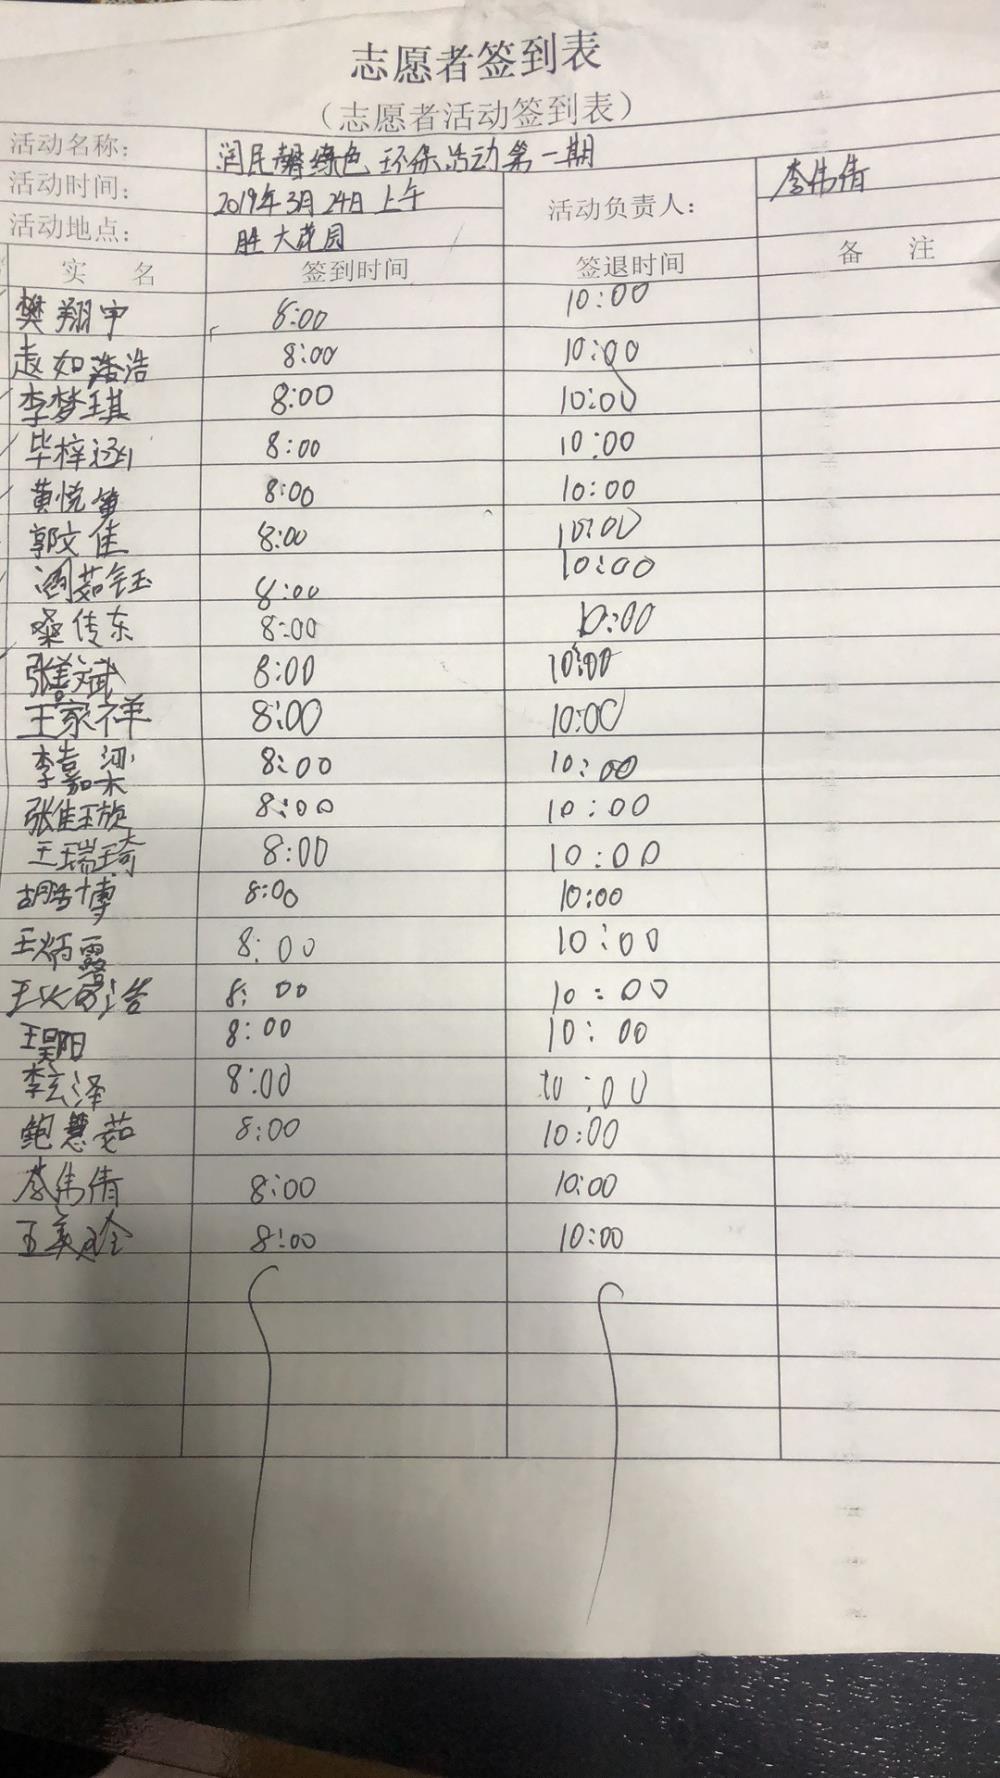 志愿者签到表
（志愿者活动签到表）
活动名称： 润民馨绿色环保活动第一期
活动时间： 2019年3月24日上午 活动负责人： 李伟倩
活动地点： 胜大花园
实 名 签到时间 签退时间 备 注
樊翔宇 8:00 10:00
赵如浩 8:00 10:00
李梦琪 8:00 10:00
毕梓涵 8:00 10:00
黄悦 8:00 10:00
郭文佳 8:00 10:00
茹钰 8:00 10:00
桑传东 8:00 10:00
张善斌 8:00 10:00
王家祥 8:00 10:00
李嘉梁 8:00 10:00
张佳璇 8:00 10:00
王瑞琦 8:00 10:00
胡博 8:00 10:00
王炳露 8:00 10:00
王 8:00 10:00
王昊阳 8:00 10:00
李玄泽 8:00 10:00
鲍慧茹 8:00 10:00
李伟倩 8:00 10:00
王美玲 8:00 10:00